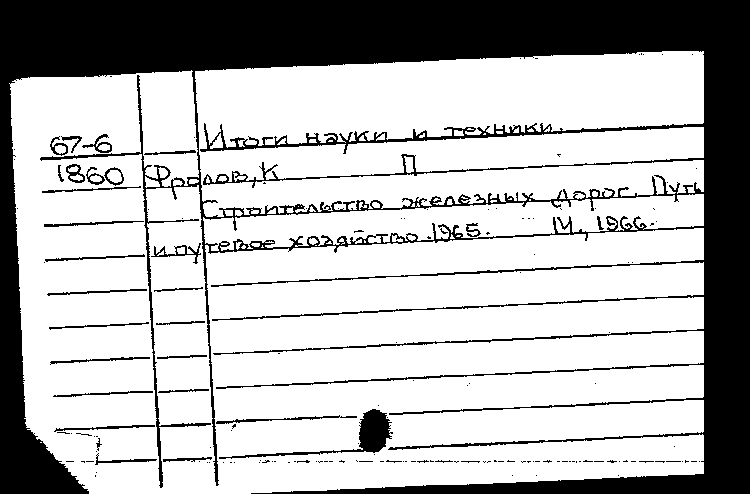 67-6 Итоги науки и техники.
1860 Фролов, К П
Строительство железных дорог. Путь
и путевое хозяйство. 1965. М., 1966.